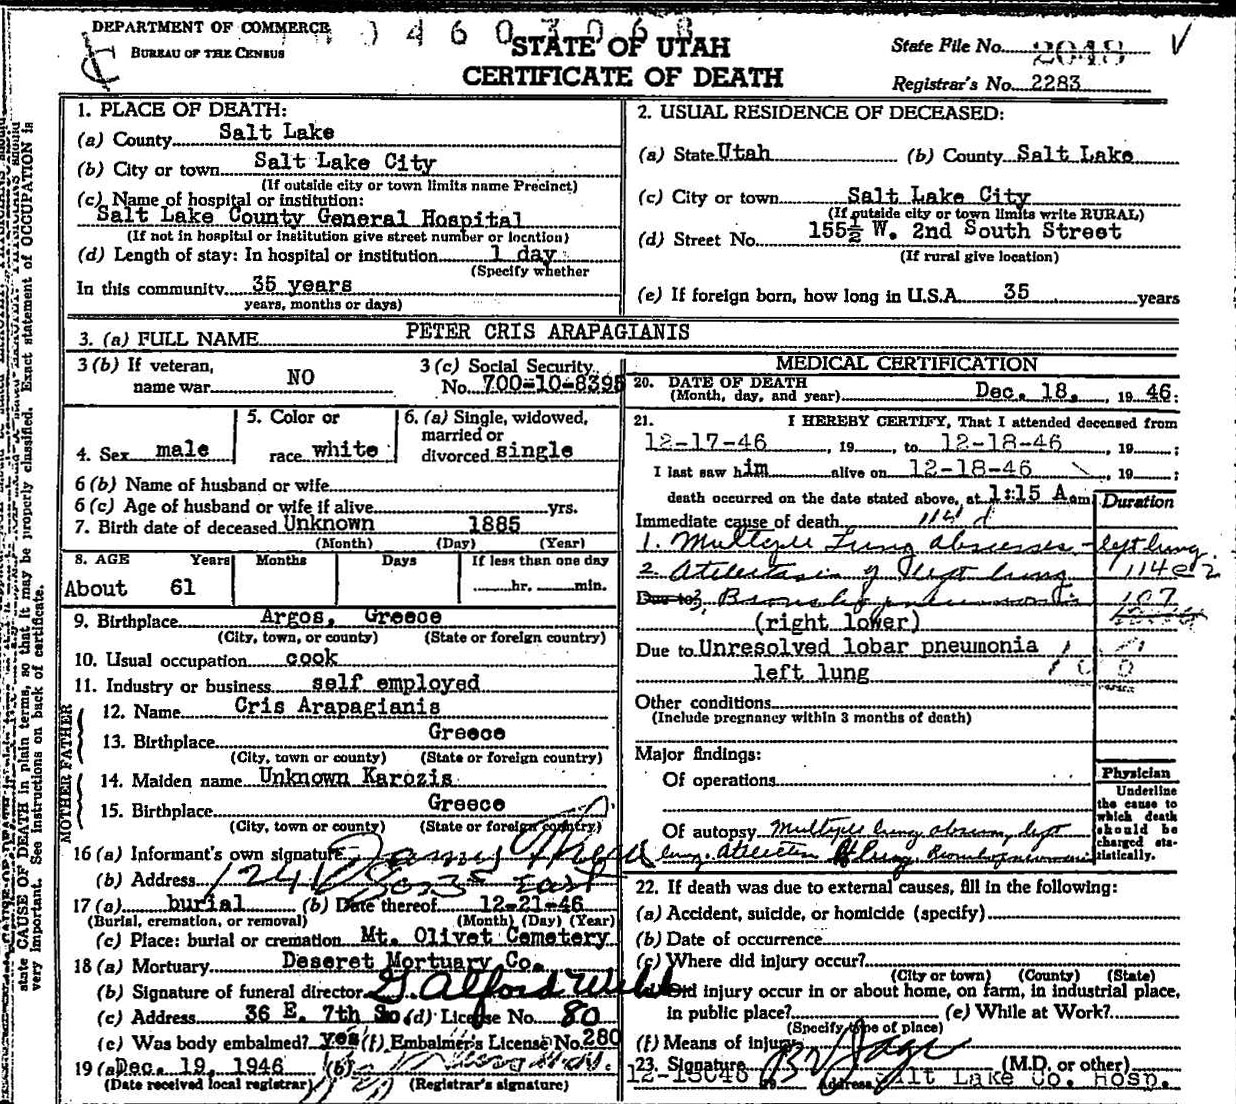 DEPARTMENT OF COMMERCE
BUREAU OF THE CENSUS
STATE OF UTAH
CERTIFICATE OF DEATH
State File No.
Registrar's No. 2283
1. PLACE OF DEATH:
(a) County Salt Lake
(b) City or town Salt Lake City
(If outside city or town limits name Precinct)
(c) Name of hospital or institution:
Salt Lake County General Hospital
(If not in hospital or institution give street number or location)
(d) Length of stay: In hospital or institution 1 day
(Specify whether
In this community 35 years
years, months or days)
2. USUAL RESIDENCE OF DECEASED:
(a) State Utah (b) County Salt Lake
(c) City or town Salt Lake City
(If outside city or town limits write RURAL)
(d) Street No. 155½ W. 2nd South Street
(If rural give location)
(e) If foreign born, how long in U.S.A. 35 years
3. (a) FULL NAME PETER CRIS ARAPAGIANIS
3 (b) If veteran, name war NO
3 (c) Social Security No. 700-10-8395
4. Sex male
5. Color or race white
6. (a) Single, widowed, married or divorced single
6 (b) Name of husband or wife
6 (c) Age of husband or wife if alive yrs.
7. Birth date of deceased Unknown 1885
(Month) (Day) (Year)
8. AGE Years Months Days If less than one day
About 61 hr. min.
9. Birthplace Argos, Greece
(City, town, or county) (State or foreign country)
10. Usual occupation cook
11. Industry or business self employed
FATHER
12. Name Cris Arapagianis
13. Birthplace Greece
(City, town or county) (State or foreign country)
MOTHER
14. Maiden name Unknown Karozis
15. Birthplace Greece
(City, town or county) (State or foreign country)
16 (a) Informant's own signature James
(b) Address East
17 (a) burial (b) Date thereof 12-21-46
(Burial, cremation, or removal) (Month) (Day) (Year)
(c) Place: burial or cremation Mt. Olivet Cemetery
18 (a) Mortuary Deseret Mortuary Co.
(b) Signature of funeral director
(c) Address 36 E. 7th So. (d) License No. 80
(e) Was body embalmed? yes (f) Embalmer's License No. 280
19 (a) Dec. 19, 1946 (b)
(Date received local registrar) (Registrar's signature)
MEDICAL CERTIFICATION
20. DATE OF DEATH
(Month, day, and year) Dec. 18, 19 46;
21. I HEREBY CERTIFY, That I attended deceased from
12-17-46, 19 to 12-18-46, 19 ;
I last saw him alive on 12-18-46, 19 ;
death occurred on the date stated above, at 1:15 A.m.
Duration
Immediate cause of death
1. Multiple Lung abscesses - left lung.
2. Atelectasis of left lung 114e2
Due to 3. Bronchopneumonia 107
(right lower)
Due to Unresolved lobar pneumonia
left lung
Other conditions
(Include pregnancy within 3 months of death)
Major findings:
Of operations
Of autopsy Multiple lung abscess, left
lung. Atelectasis of lung. Bronchopneumonia
Physician
Underline
the cause to
which death
should be
charged sta-
tistically.
22. If death was due to external causes, fill in the following:
(a) Accident, suicide, or homicide (specify)
(b) Date of occurrence
(c) Where did injury occur?
(City or town) (County) (State)
Did injury occur in or about home, on farm, in industrial place,
in public place? (e) While at Work?
(Specify type of place)
(f) Means of injury
23. Signature (M.D. or other)
Address Salt Lake Co. Hosp.
state CAUSE OF DEATH in plain terms, so that it may be properly classified. Exact statement of OCCUPATION is
very important. See instructions on back of certificate.